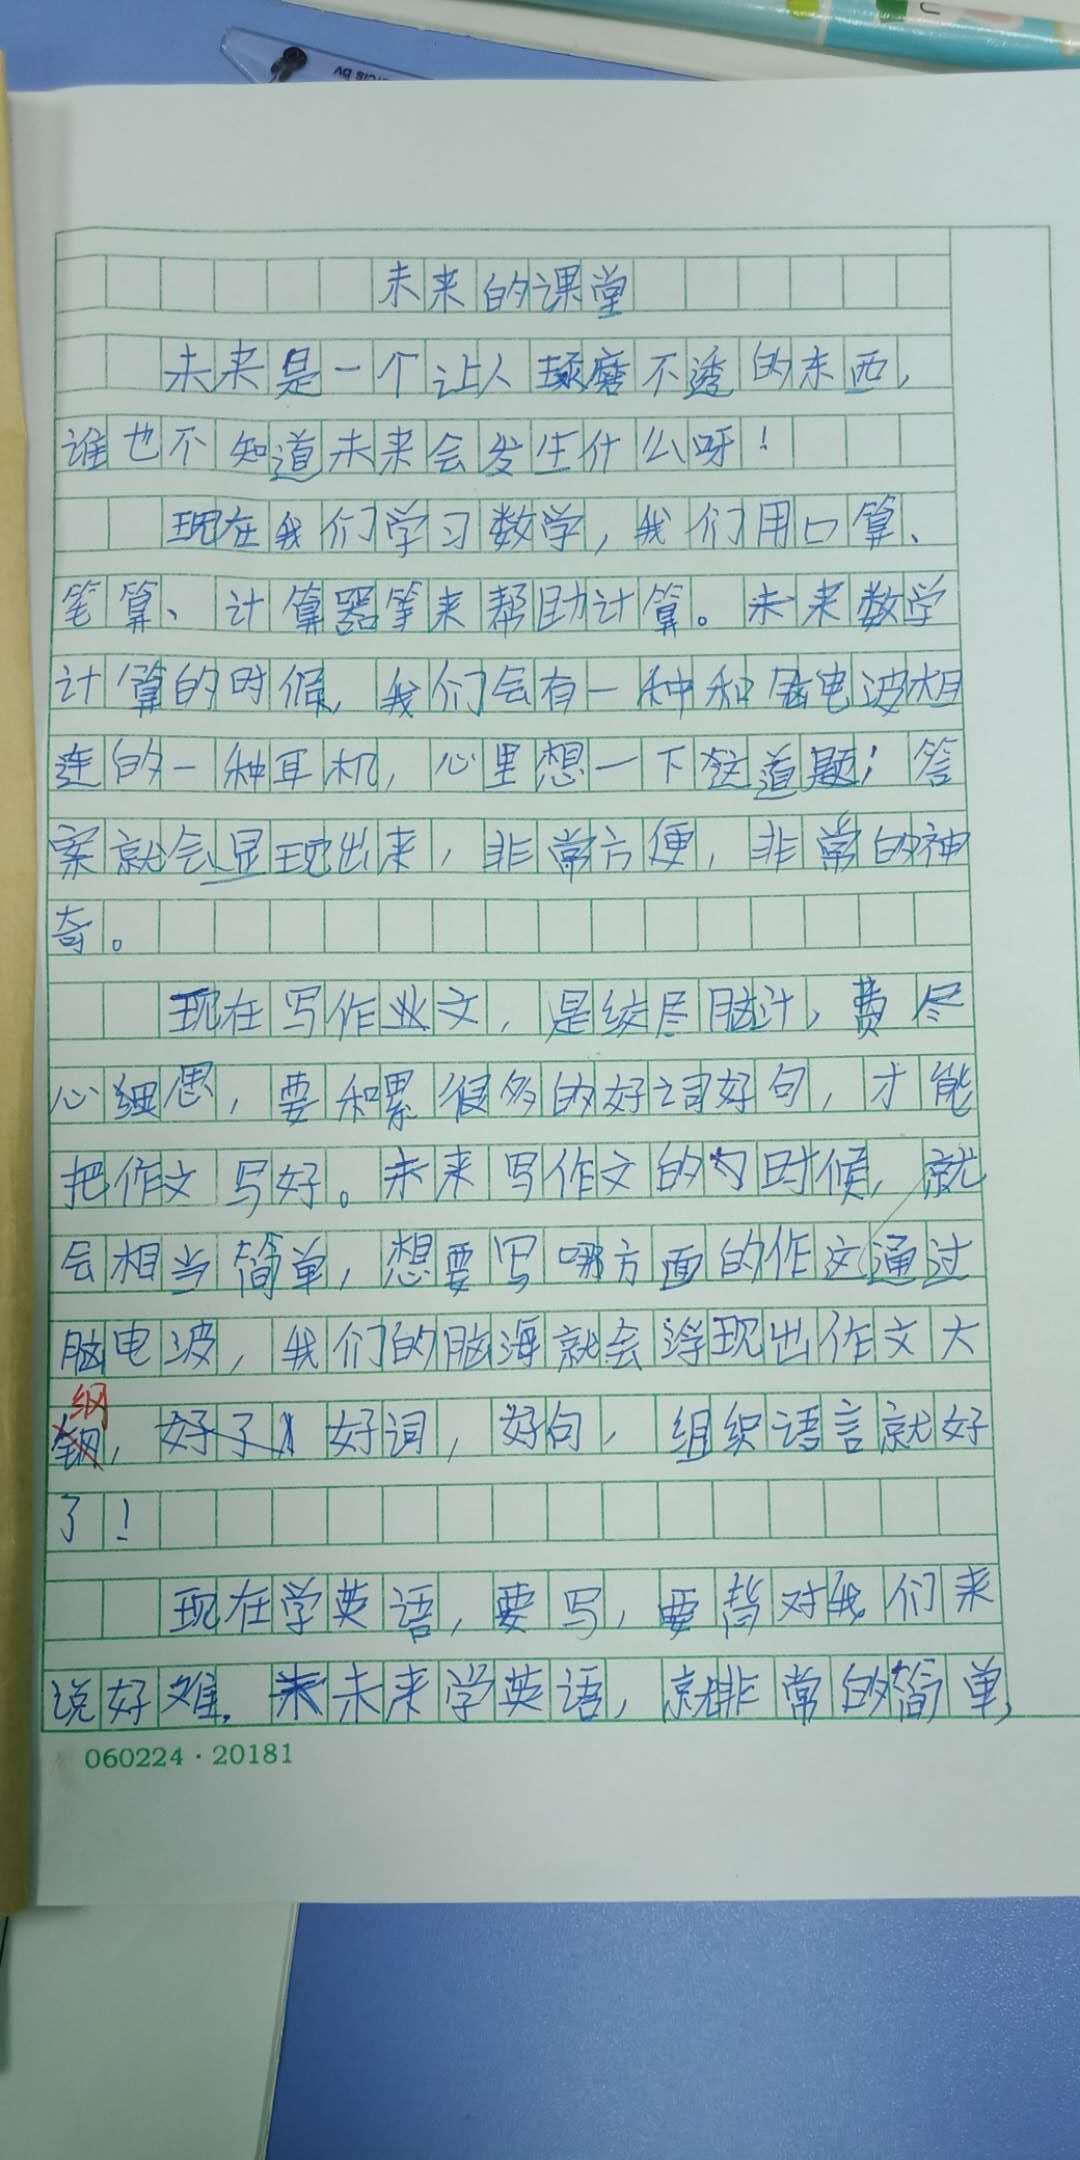 未来的课堂
未来是一个让人琢磨不透的东西,
谁也不知道未来会发生什么呀!
现在我们学习数学,我们用口算、
笔算、计算器等来帮助计算。未来数学
计算的时候,我们会有一种和脑电波相
连的一种耳机,心里想一下这道题;答
案就会显现出来,非常方便,非常的神
奇。
现在写作文,是绞尽脑汁,费尽
心思,要积累很多的好词好句,才能
把作文写好。未来写作文的时候,就
会相当简单,想要写哪方面的作文通过
脑电波,我们的脑海就会浮现出作文大
纲,好词,好句,组织语言就好
了!
现在学英语,要写,要背对我们来
说好难,未来学英语,就非常的简单,
060224·20181